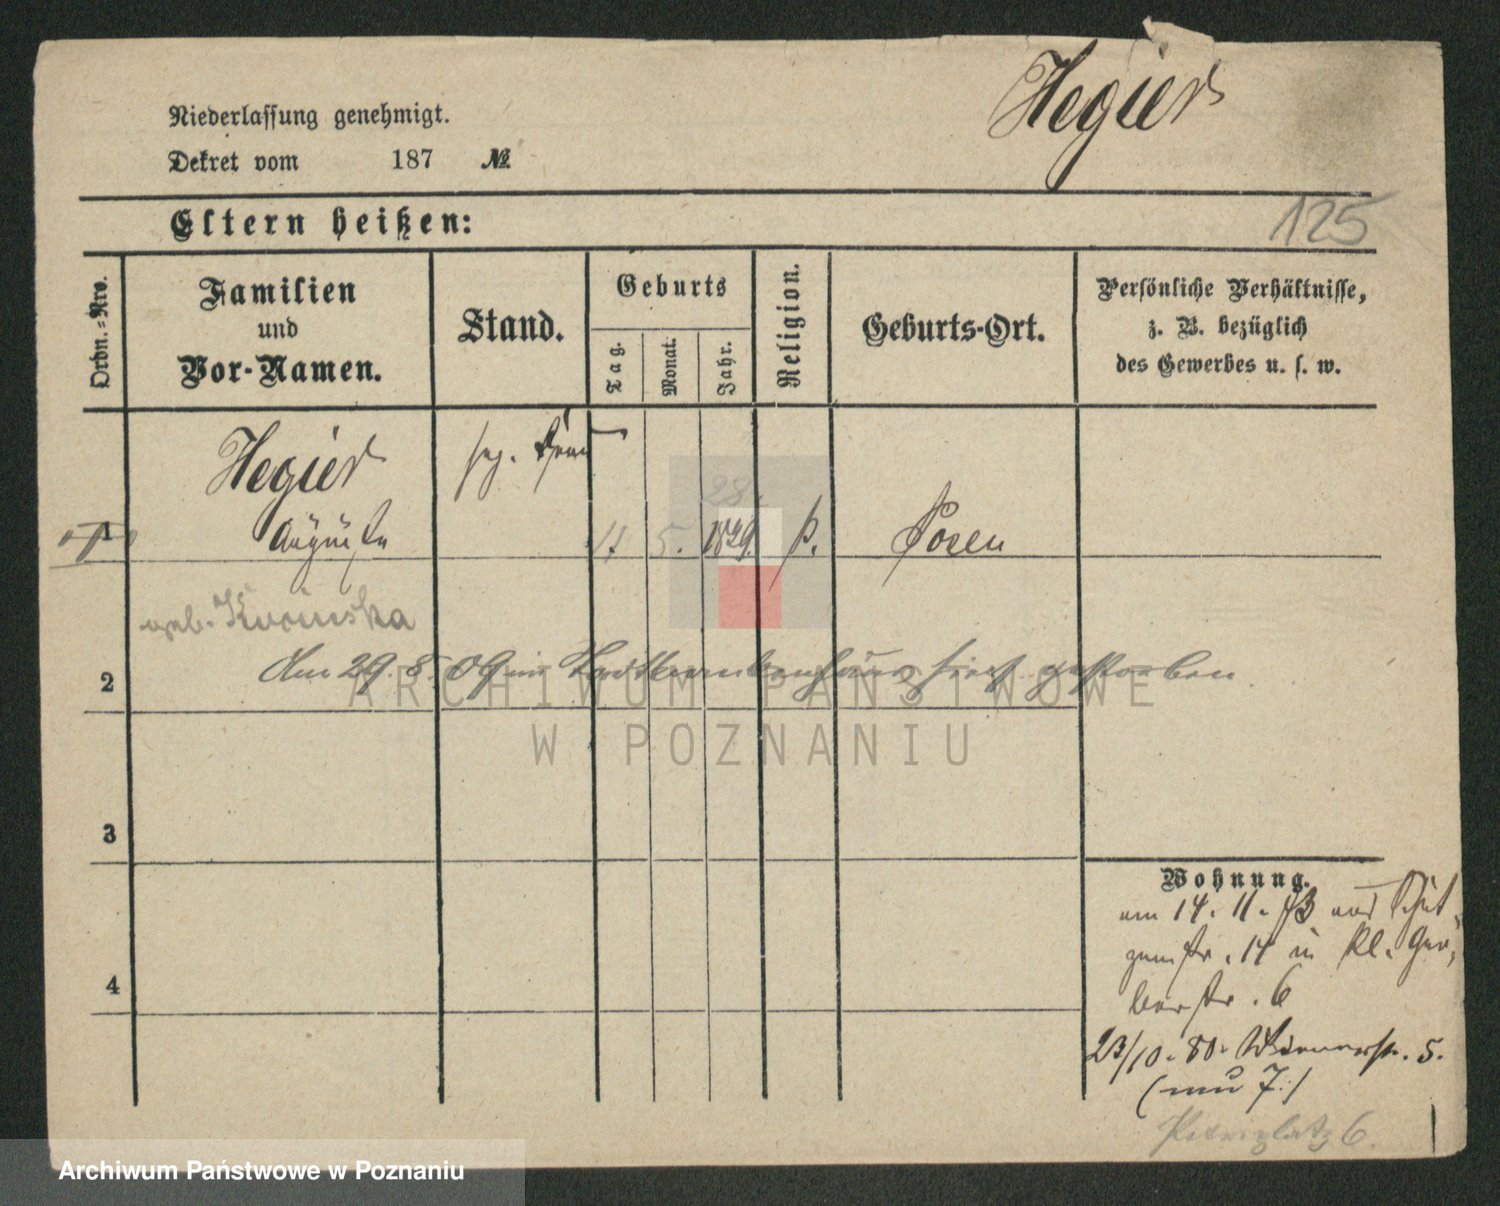 Hegier
Niederlassung genehmigt.
Dekret vom 187 №
Eltern heißen:
125
Ordn.-Nro.
Familien
und
Vor-Namen.
Stand.
Geburts
Tag.
Monat.
Jahr.
Religion.
Geburts-Ort.
Persönliche Verhältnisse,
z. B. bezüglich
des Gewerbes u. s. w.
Hegier
28.
1 Auguste 11. 5. 1829. Posen
geb.
2 Am 29. 8. 09 im hier gestorben
3
4
Wohnung.
am 14. 11. 73 aus Schüt-
zenstr. 14 in Kl. Ger-
berstr. 6
23/10. 80. 5.
(neu 7.)
Petriplatz 6.
ARCHIWUM PAŃSTWOWE
W POZNANIU
Archiwum Państwowe w Poznaniu